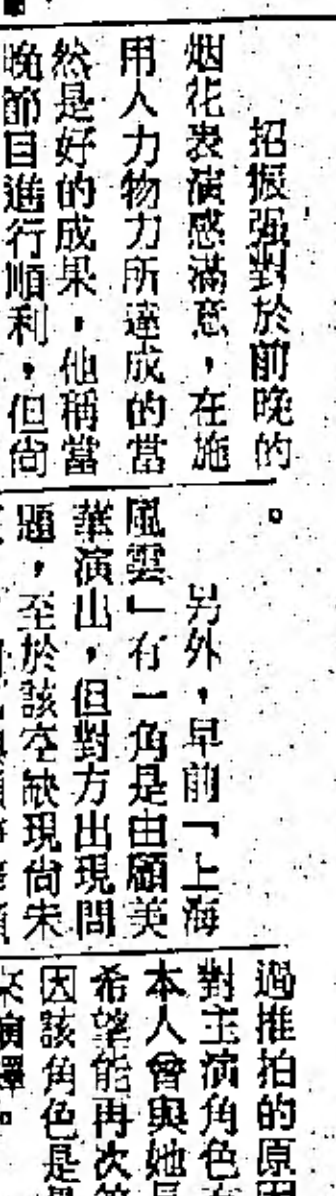 招振强對於前晚的
烟花表演感滿意，在施
用人力物力所達成的當
然是好的成果，他稱當
晚節目進行順利，但尚
。
另外，早前「上海
風雲」有一角是由顧美
華演出，但對方出現問
題，至於該空缺現尚未
過推拍的原
對主演角色
本人曾與她
希望能再次
因該角色是
演繹。